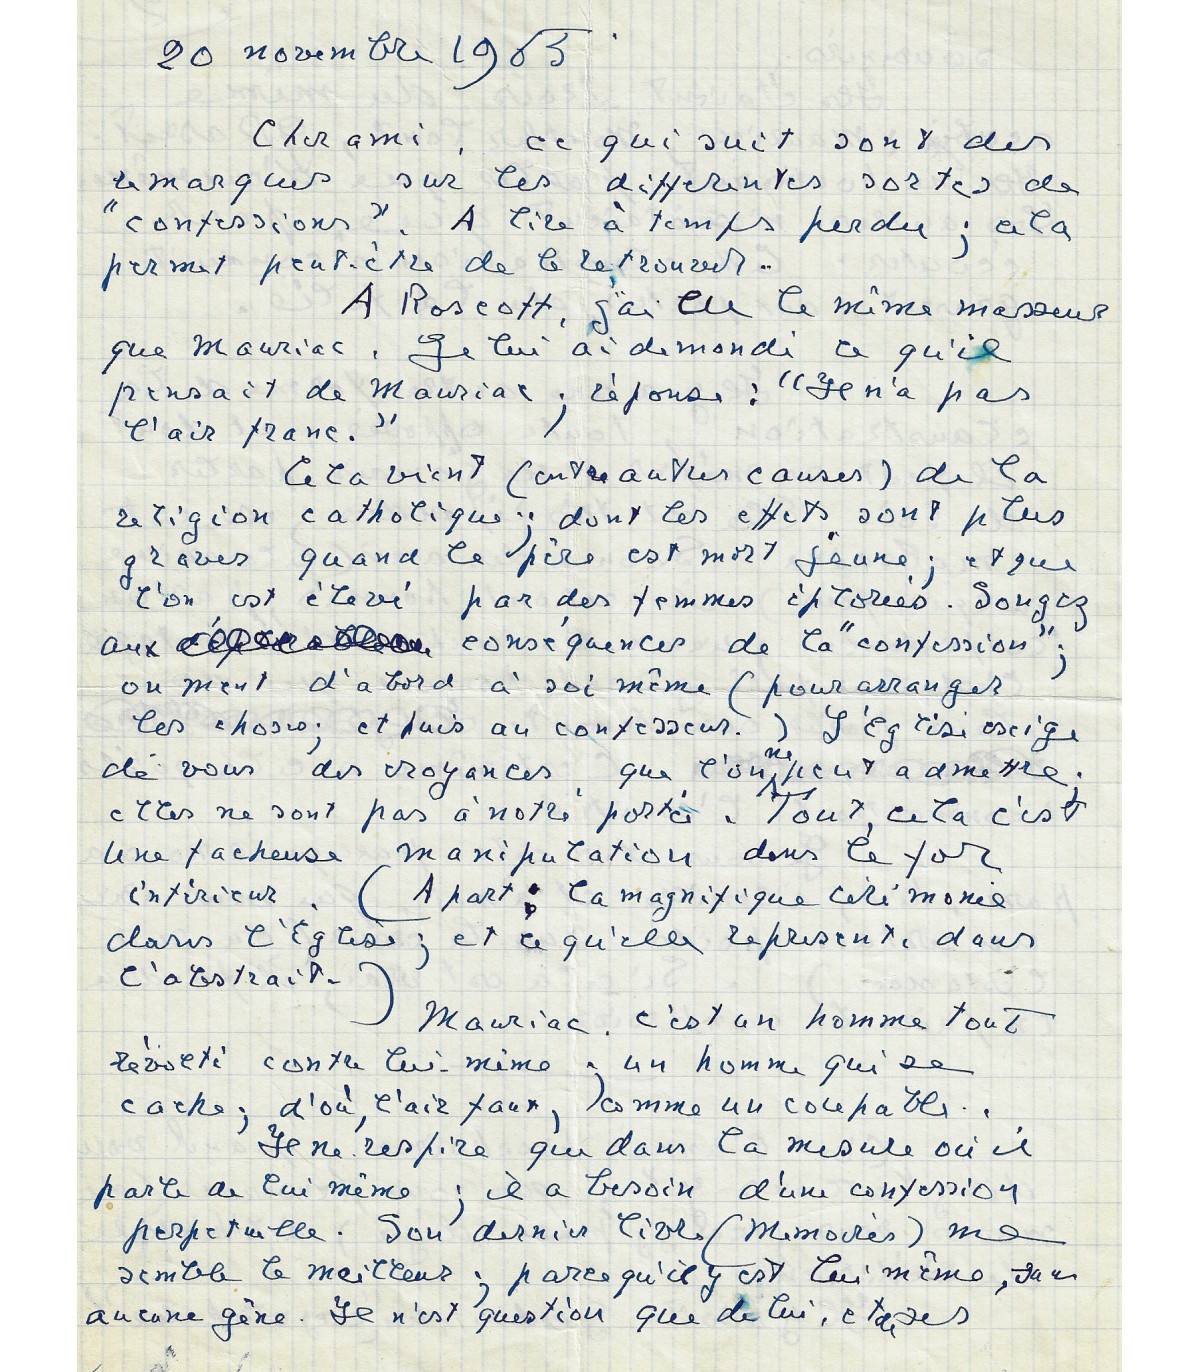 20 novembre 1965
Cher ami, ce qui suit sont des
remarques sur les différentes sortes de
"confessions". A lire à temps perdu ; cela
permet peut-être de le retrouver..
A Roscoff, j'ai eu le même masseur
que Mauriac. Je lui ai demandé ce qu'il
pensait de Mauriac ; réponse : "Il n'a pas
l'air franc."
Cela vient (entre autres causes) de la
religion catholique ; dont les effets sont plus
graves quand le père est mort jeune ; et que
l'on est élevé par des femmes éplorées. Songez
aux conséquences de la "confession" ;
on ment d'abord à soi même (pour arranger
les choses; et puis au confesseur.) L'Église exige
de vous des croyances que l'on ne peut admettre ;
elles ne sont pas à notre portée. Tout cela c'est
une facheuse manipulation dans le for
intérieur. (A part : la magnifique cérémonie
dans l'Eglise ; et ce qu'elle représente dans
l'abstrait.)
Mauriac. c'est un homme tout
révolté contre lui-même ; un homme qui se
cache ; d'où, l'air faux, comme un coupable..
Il ne respire que dans la mesure où il
parle de lui même ; il a besoin d'une confession
perpetuelle. Son dernier livre (Memoires) me
semble le meilleur ; parce qu'il y est lui même, sans
aucune gêne. Il n'est question que de lui, et de ses